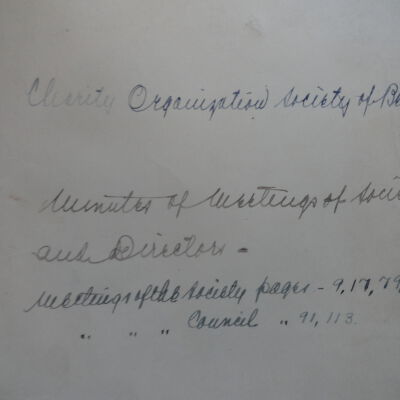 Charity Organization Society of B
Minutes of Meetings of Soci
and Directors -
Meetings of the Society pages - 9, 17, 79
" " " Council " 91, 113